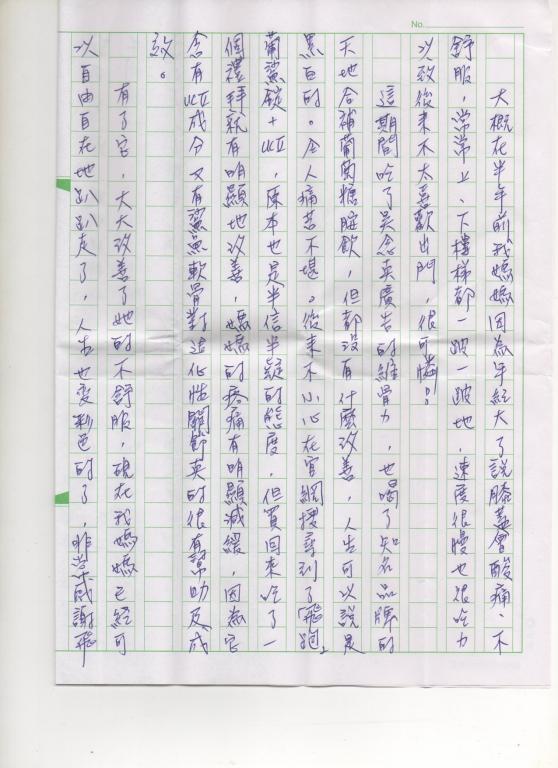 No.
大概在半年前,我媽媽因為年紀大了說膝蓋會酸痛、不
舒服,常常上、下樓梯都一跛一跛地,速度很慢也很吃力
以致後來不太喜歡出門,很可憐。
這期間吃了吳念英廣告的維骨力,也喝了知名品牌的
天地合補葡萄糖胺飲,但都沒有什麼改善,人生可以說是
黑白的。令人痛苦不堪。後來不小心在官網搜尋到了「飛跑」
葡鯊錠+UCII,原本也是半信半疑的態度,但買回來吃了一
個禮拜就有明顯地改善,媽媽的疼痛有明顯減緩,因為它
含有UCII成分又有鯊魚軟骨對退化性關節英的很有幫助及成
效。
有了它,大大改善了她的不舒服,現在我媽媽已經可
以自由自在地趴趴走了,人生也變彩色的了,非常感謝飛